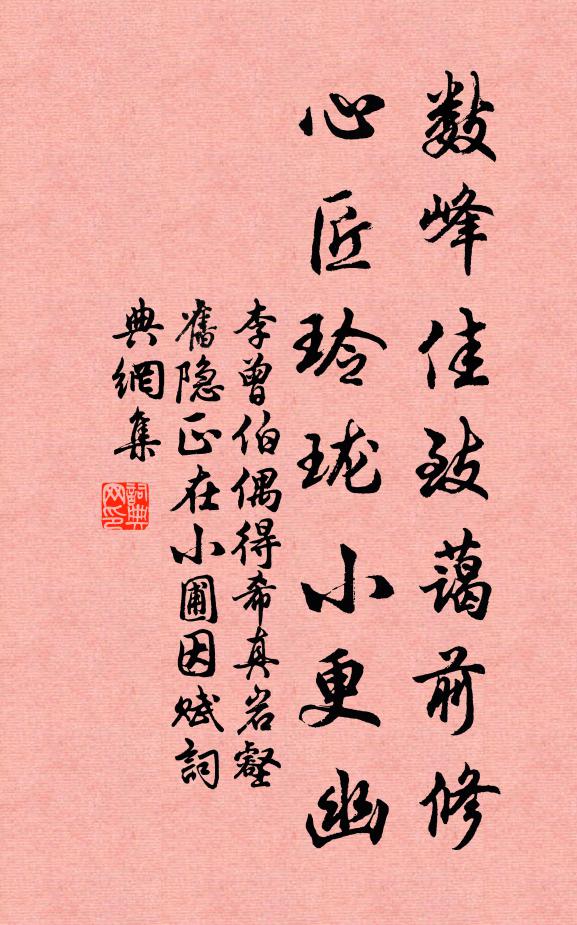 数峰佳致蔼前修
心匠玲珑小更幽
李曾伯偶得希真岩壑
舊隐正在小圃因赋詞
典網集
詞典
网印